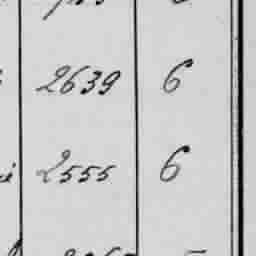 2639 6
2555 6